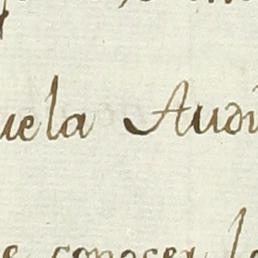 uela Audi
e conocer l